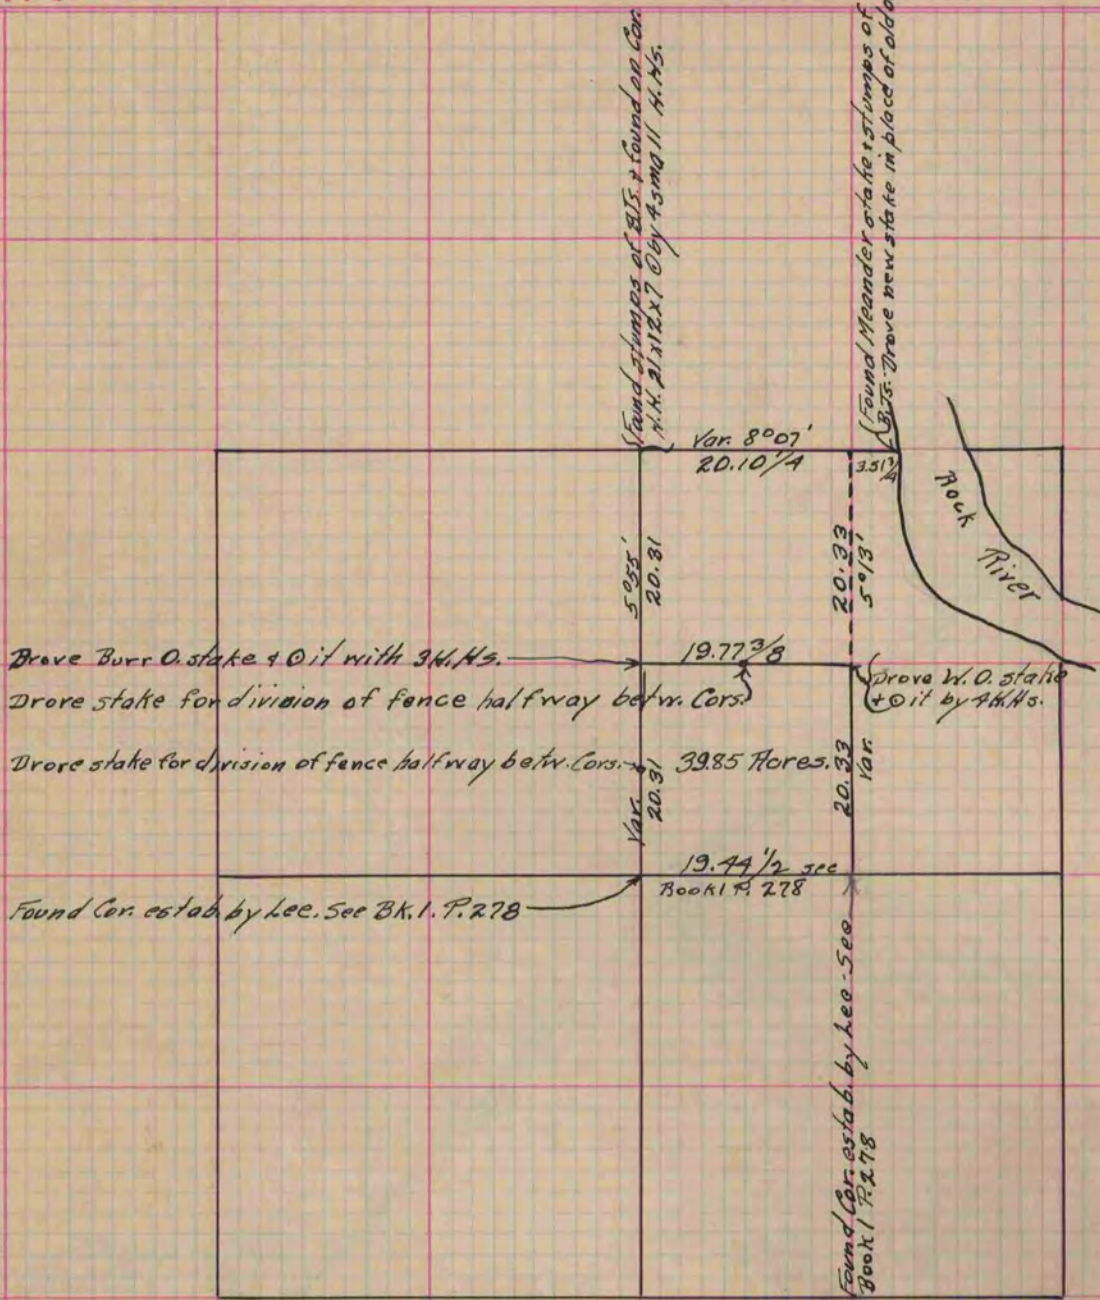 (Found stumps of BTs. & found on Cor.
N.H. 21x12x7 ⊙ by 4 small H.Hs.
(Found Meander stake & stumps of
B.Ts. Drove new stake in place of old
Var. 8°07'
20.10 1/4
3.51 3/4
Rock
River
5°55'
20.31
20.33
5°13'
Drove Burr O. stake & ⊙ it with 3 H.Hs.
19.77 3/8
Drove stake for division of fence halfway betw. Cors.
Drove W.O. stake
& ⊙ it by 4 H.Hs.
Drove stake for division of fence halfway betw. Cors.
39.85 Acres.
Var.
20.31
20.33
Var.
19.44 1/2 see
Book 1 P. 278
Found Cor. estab by Lee. See Bk. 1. P. 278
Found Cor. estab. by Lee - See
Book 1 P. 278